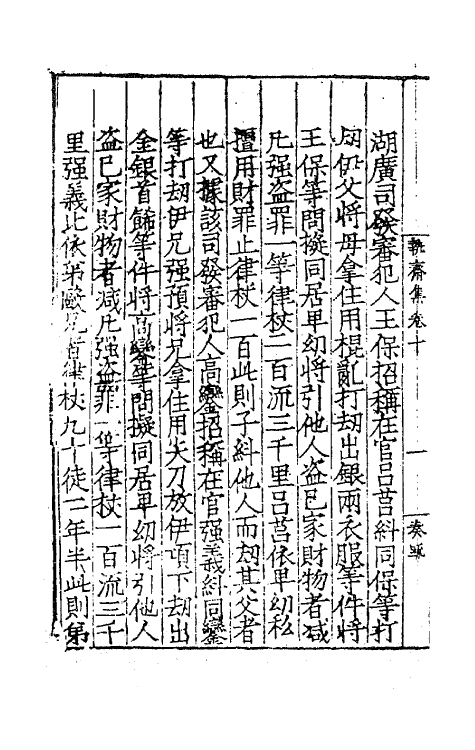 湖廣司發審犯人王保招稱在官呂莒糾同保等打
刼伊父將母拿住用棍亂打刼出銀兩衣服等件將
王保等問擬同居卑幼將引他人盜已家財物者减
凡强盜罪一等律杖一百流三千里呂莒依卑幼私
擅用財罪止律杖一百此則子糾他人而刼其父者
也又據該司發審犯人高鑾招稱在官强義糾同鑾
等打刼伊兄强預將兄拿住用尖刀放伊項下刼出
金銀首餙等件將高鑾等問擬同居卑幼將引他人
盜已家財物者减凡强盜罪一等律杖一百流三千
里强義比依弟毆兄者律杖九十徒二年半此則第
執齋集卷十
一
奏疏